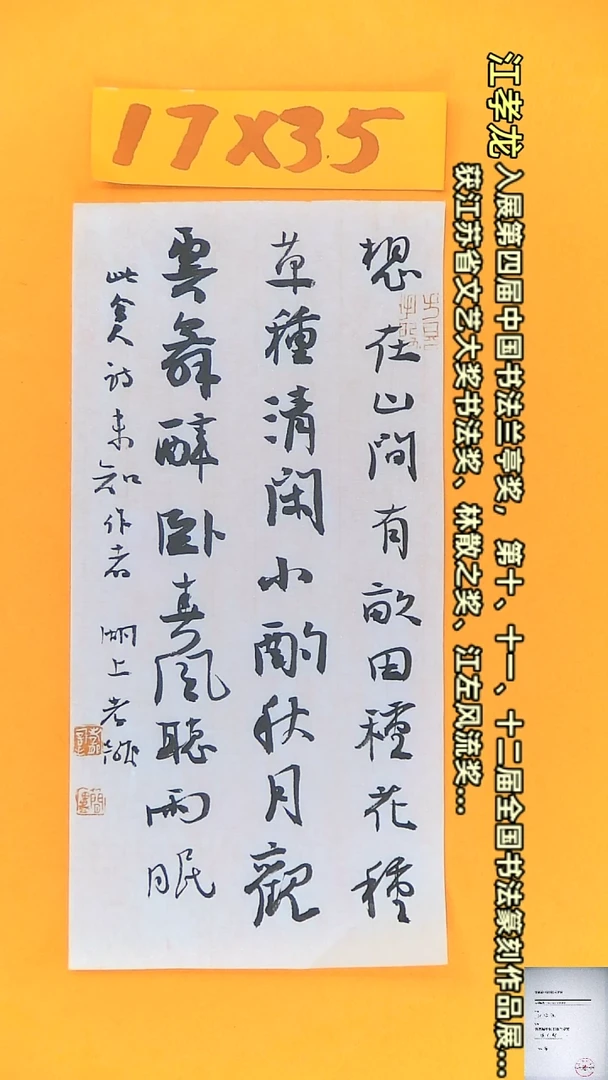 17X35
江孝龙 入展第四届中国书法兰亭奖，第十、十一、十二届全国书法篆刻作品展...
获江苏省文艺大奖书法奖、林散之奖、江左风流奖...
想在山間有畝田種花種
草種清閑小酌秋月觀
雲舞醉卧春風聽雨眠
此食人詩未知作者 湖上孝龍